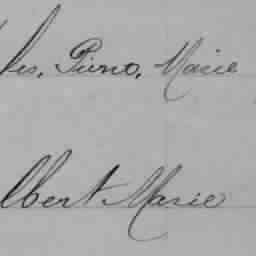 les, Pierre, Marie
lbert Marie